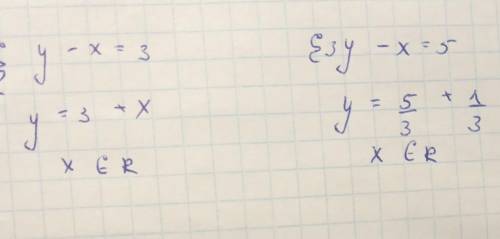 y - x = 3
y = 3 + x
x ∈ R
{3y - x = 5
y = 5/3 + 1/3
x ∈ R